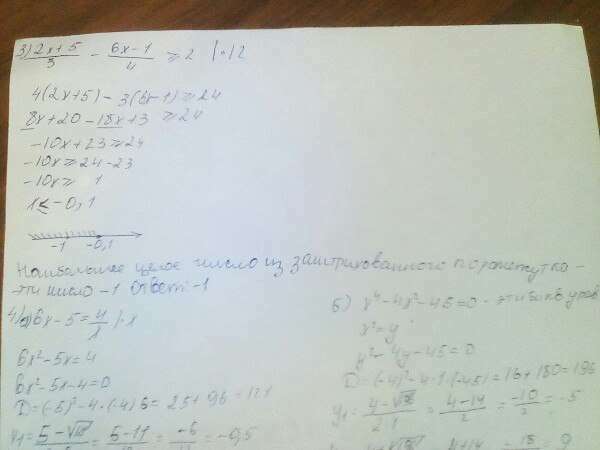 3) (2x+5)/3 - (6x-1)/4 ≥ 2 | · 12
4(2x+5) - 3(6x-1) ≥ 24
8x+20 - 18x+3 ≥ 24
-10x+23 ≥ 24
-10x ≥ 24-23
-10x ≥ 1
x ≤ -0,1
-1 -0,1
Наибольшее целое число из заштрихованного промежутка -
это число -1 Ответ: -1
4) а) 6x-5 = 4/x | · x
6x²-5x=4
6x²-5x-4=0
D=(-5)²-4·(-4)6=25+96=121
x₁ = (5-√121)/ = (5-11)/ = -6/ = -0,5
б) x⁴-4x²-45=0 - это
x²=y
y²-4y-45=0
D=(-4)²-4·1·(-45)=16+180=196
y₁ = (4-√196)/(2·1) = (4-14)/2 = -10/2 = -5
4+14 18 = 9